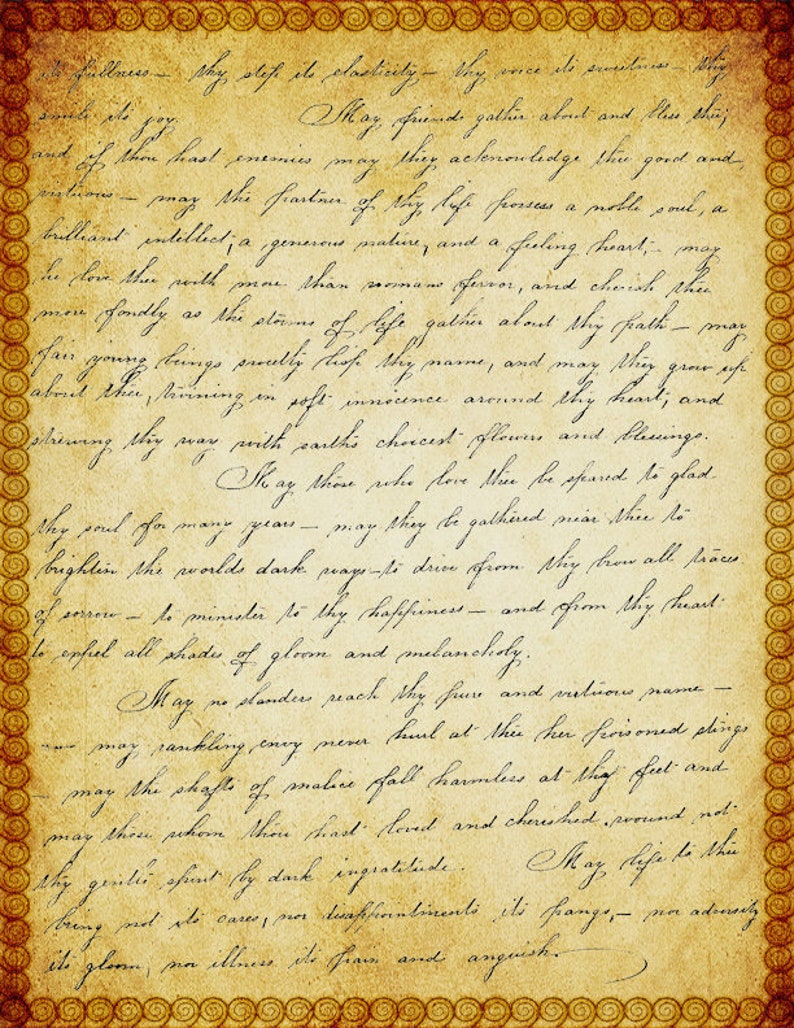 its fullness — thy step its elasticity — thy voice its sweetness — thy
smile its joy. May friends gather about and bless thee;
and if thou hast enemies may they acknowledge thee good and
virtuous — may the partner of thy life possess a noble soul, a
brilliant intellect, a generous nature, and a feeling heart, — may
he love thee with more than womans fervor, and cherish thee
more fondly as the storms of life gather about thy path — may
fair young beings sweetly lisp thy name, and may they grow up
about thee, twining in soft innocence around thy heart, and
strewing thy way with earths choicest flowers and blessings.
May those who love thee be spared to glad
thy soul for many years — may they be gathered near thee to
brighten the worlds dark ways — to drive from thy brow all traces
of sorrow — to minister to thy happiness — and from thy heart
to expel all shades of gloom and melancholy.
May no slanders reach thy pure and virtuous name —
may rankling envy never hurl at thee her poisoned stings
— may the shafts of malice fall harmless at thy feet and
may those whom thou hast loved and cherished, wound not
thy gentle spirit by dark ingratitude. May life to thee
bring not its cares, nor disappointments its pangs, — nor adversity
its gloom, nor illness its pain and anguish.